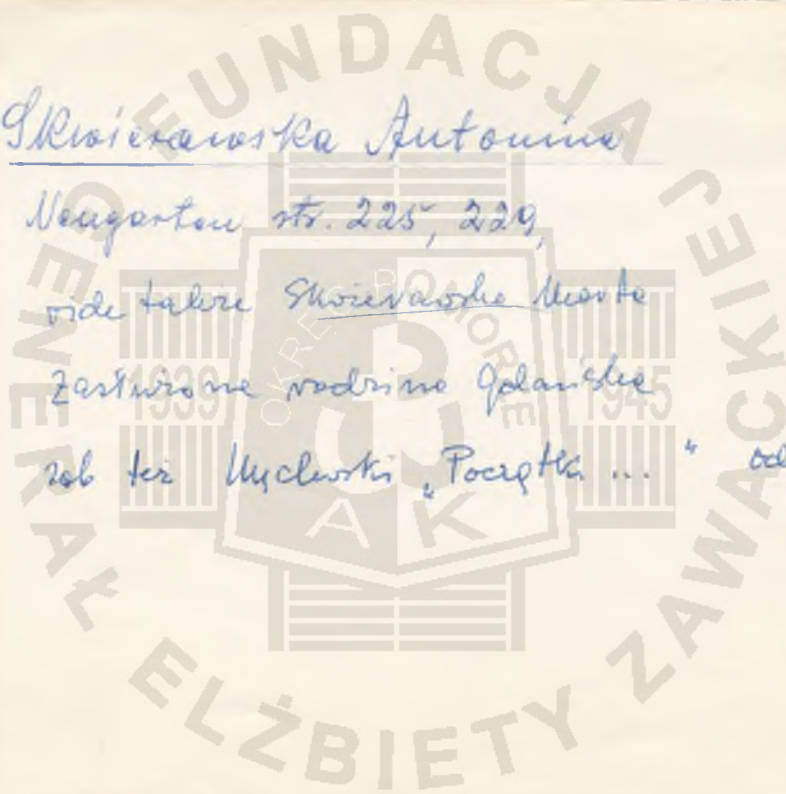 Skwierawska Antonina
Neugarten str. 225, 229,
vide także Skwierawska Marta
Zasłużona rodzina Gdańska
zob też "Początki ..." od
FUNDACJA
GENERAŁ ELŻBIETY ZAWACKIEJ
OKRĘG POMORZE
1939 1945
AK